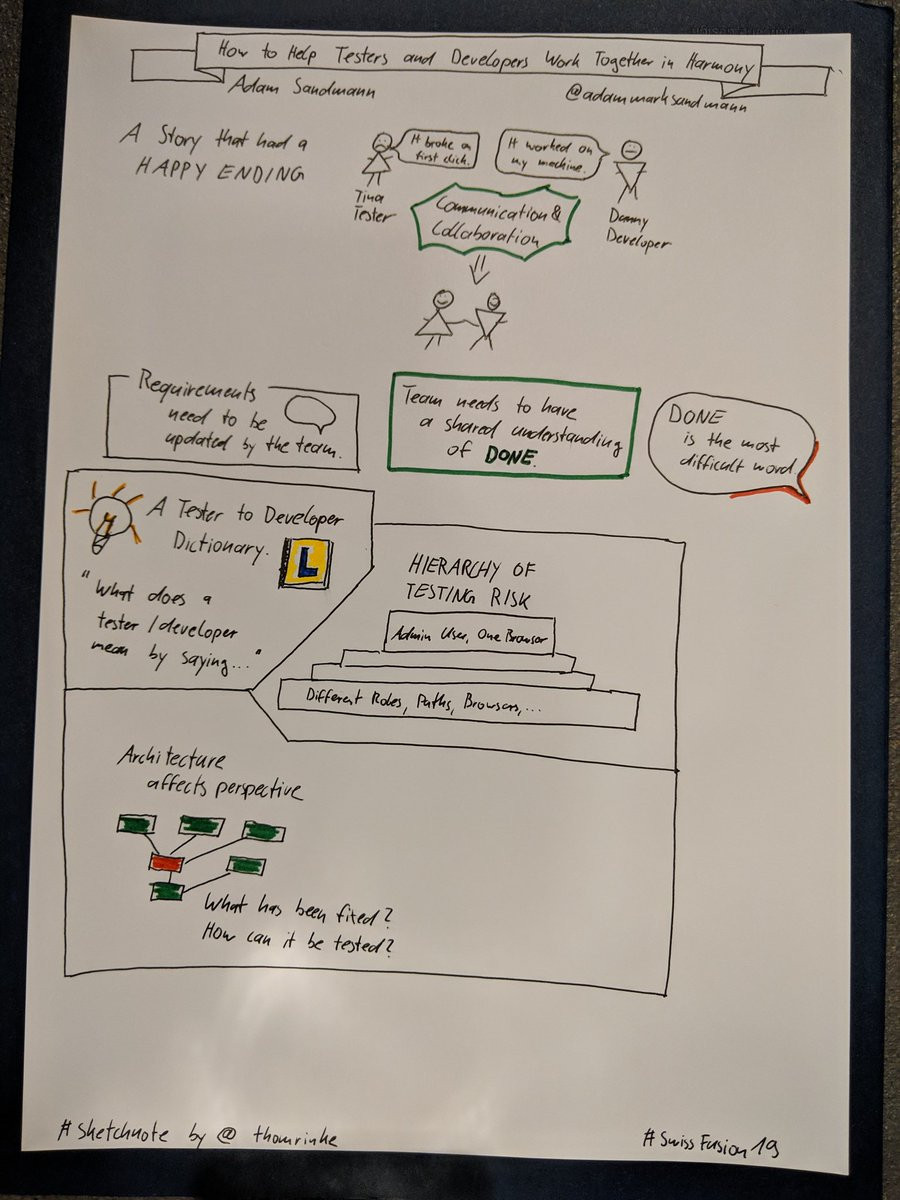 How to Help Testers and Developers Work Together in Harmony
Adam Sandmann
@adammarksandmann
A Story that had a
HAPPY ENDING
It broke on
first click.
It worked on
my machine.
Tina
Tester
Danny
Developer
Communication &
Collaboration
Requirements
need to be
updated by the team.
Team needs to have
a shared understanding
of DONE.
DONE
is the most
difficult word.
A Tester to Developer
Dictionary.
L
"What does a
tester/developer
mean by saying..."
HIERARCHY OF
TESTING RISK
Admin User, One Browser
Different Roles, Paths, Browsers,...
Architecture
affects perspective
What has been fixed?
How can it be tested?
#sketchnote by @thomrinke
#SwissFusion19